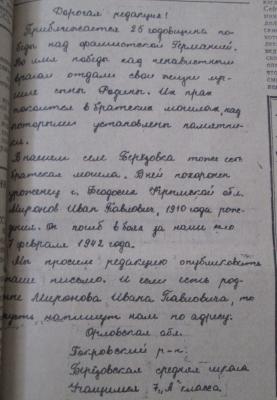 Дорогая редакция!
Приближается 25 годовщина по-
беды над фашистской Германией.
Во имя победы над ненавистным
врагом отдали свои жизни луч-
шие сыны Родины. Их прах
покоится в братских могилах, над
которыми установлены памятни-
ки.
В нашем селе Берёзовка тоже есть
братская могила. В ней похоронен
уроженец г. Феодосия Крымской обл.
Миронов Иван Павлович, 1910 года рож-
дения. Он погиб в боях за наше село
7 февраля 1942 года.
Мы просим редакцию опубликовать
наше письмо. И если есть род-
ные Миронова Ивана Павловича, то
пусть напишут нам по адресу:
Орловская обл.
Покровский р-н.
Берёзовская средняя школа
Учащимся 7 „А" класса.